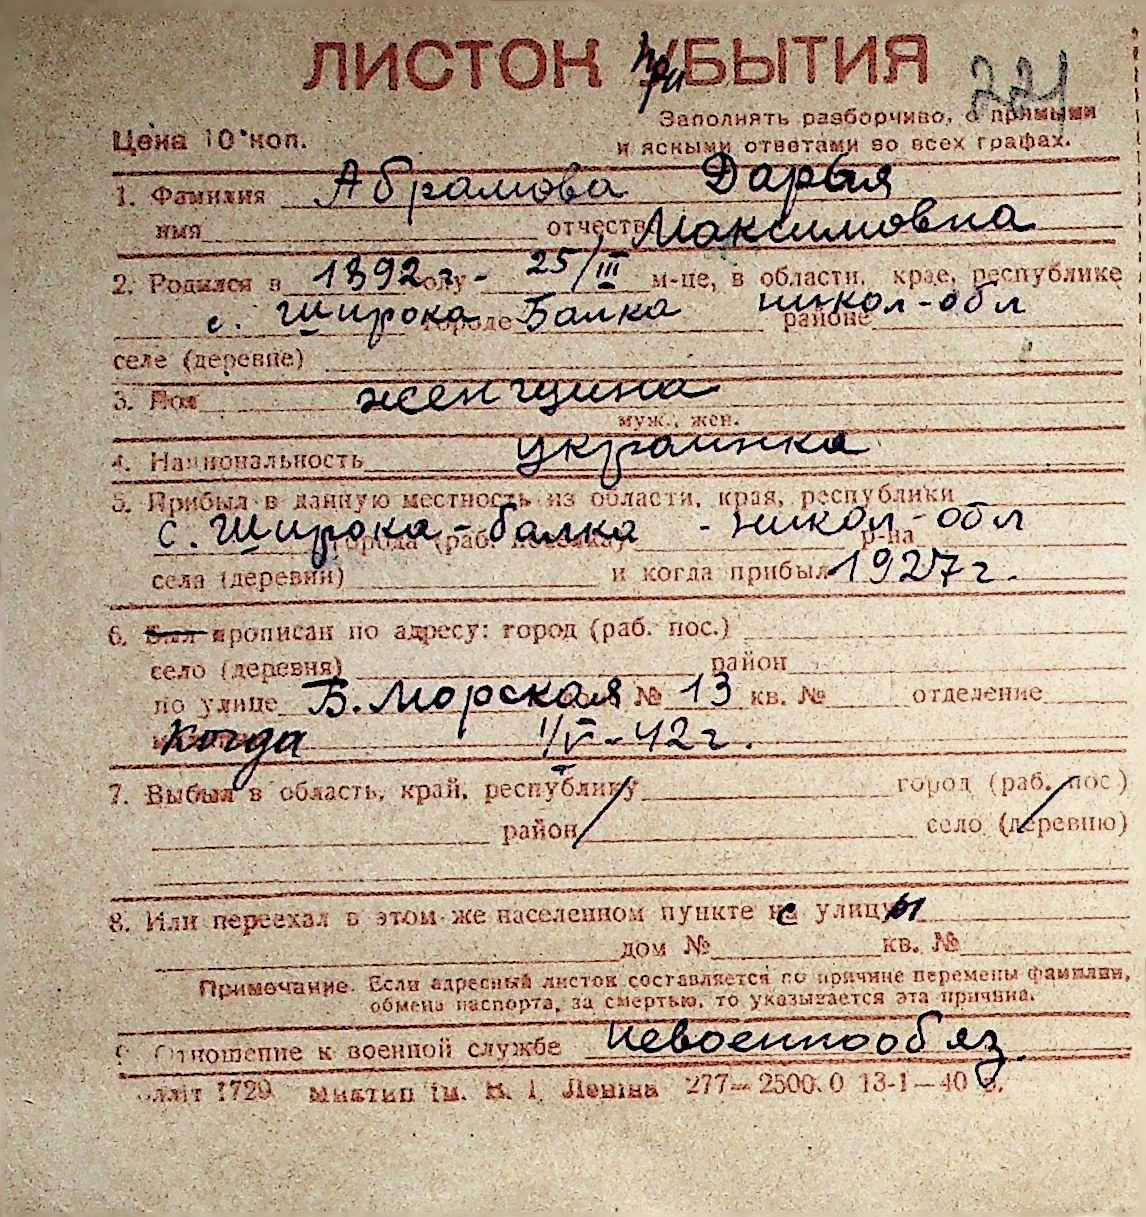 ЛИСТОК при УБЫТИЯ 221
Заполнять разборчиво, с прямыми
Цена 10 коп. и ясными ответами во всех графах.
1. Фамилия Абрамова Дарья
имя отчество Максимовна
2. Родился в 1892 г. году - 25/III м-це, в области, крае, республике
с. Широка городе Балка никол-обл районе
селе (деревне)
3. Пол женщина
муж., жен.
4. Национальность украинка
5. Прибыл в данную местность из области, края, республики
с. Широка-балка - никол-обл р-на
города (раб. поселка)
села (деревни) и когда прибыл 1927 г.
6. Был прописан по адресу: город (раб. пос.)
село (деревня) район
по улице Б. Морская № 13 кв. № отделение
Когда 1/V-42 г.
7. Выбыл в область, край, республику город (раб. пос.)
район село (деревню)
8. Или переехал в этом же населенном пункте с улицы
дом № кв. №
Примечание. Если адресный листок составляется по причине перемены фамилии,
обмена паспорта, за смертью, то указывается эта причина.
9. Отношение к военной службе невоеннообяз.
1729 Миктип ім. В. І. Леніна 277— 13-1—40